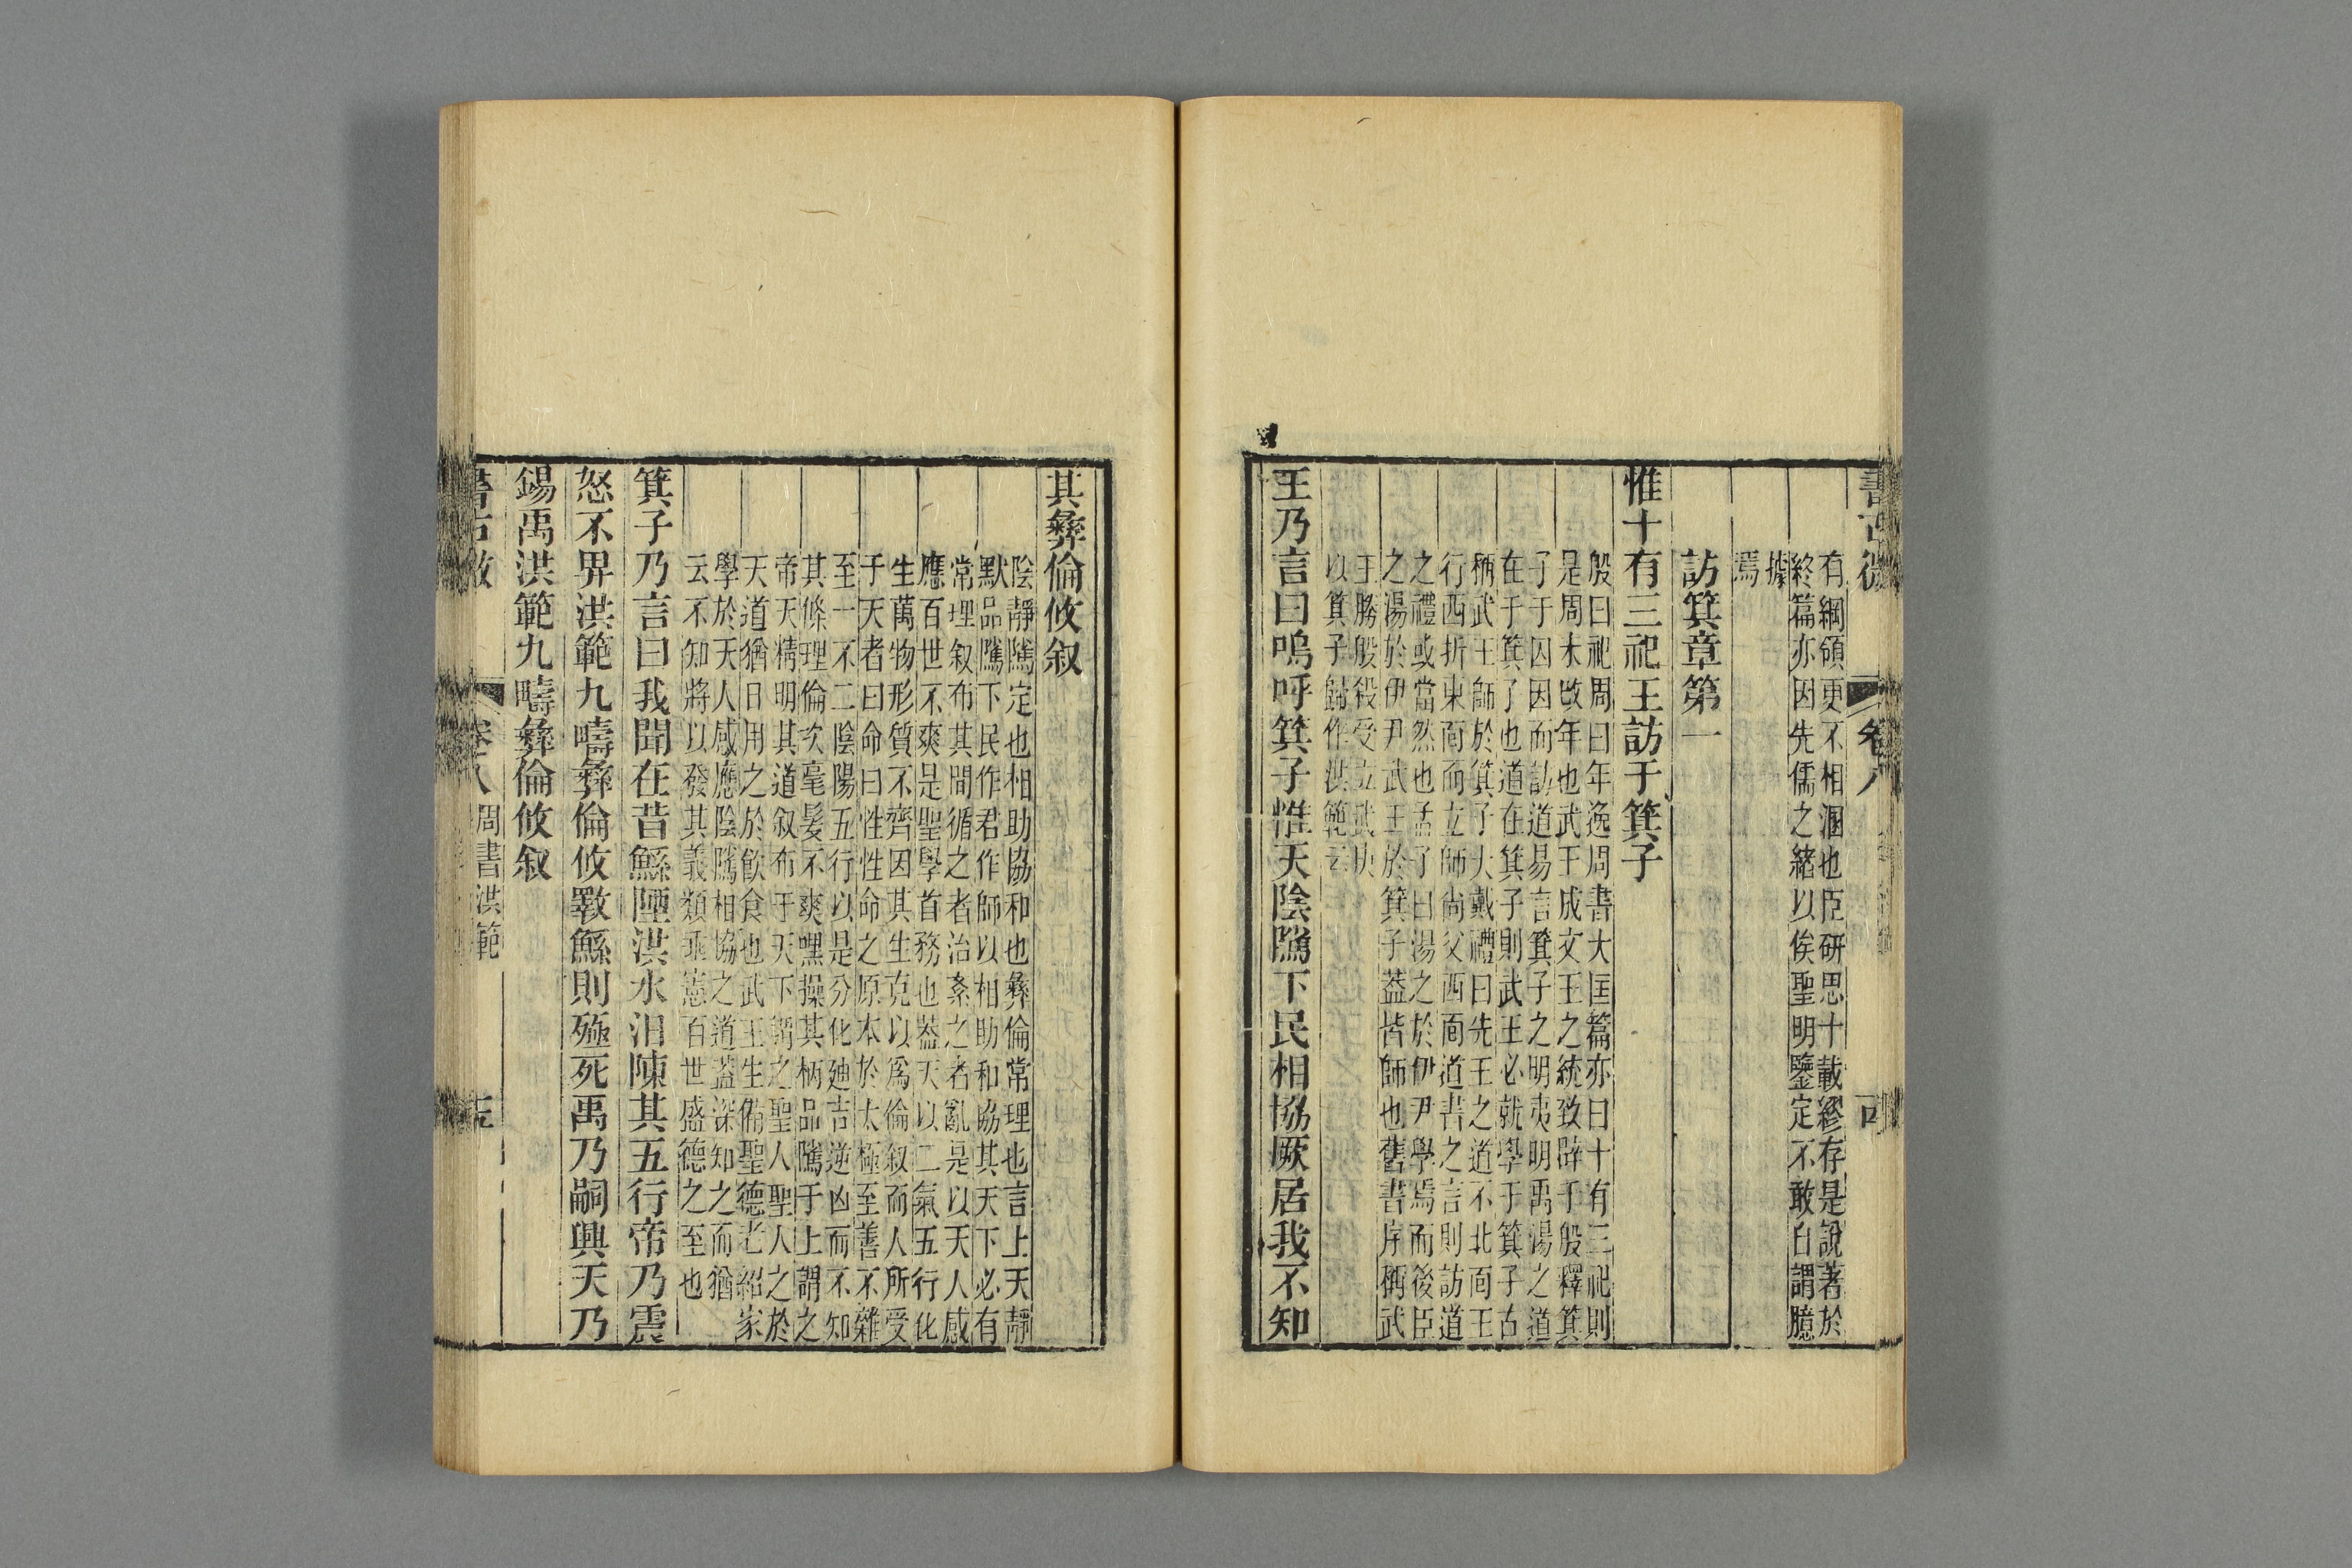 書古微
卷八
有綱領更不相溷也臣研思十載繆存是說著於
終篇亦因先儒之緒以俟聖明鑒定不敢自謂臆
據
焉
訪箕章第一
惟十有三祀王訪于箕子
殷曰祀周曰年逸周書大匡篇亦曰十有三祀則
是周未改年也武王成文王之統致辟于殷釋箕
子于囚因而訪道易言箕子之明夷明禹湯之道
在于箕子也道在箕子則武王必就學于箕子古
柄武王師於箕子大戴禮曰先王之道不北面王
行西折東面而立師尚父西面道書之言則訪道
之禮或當然也孟子曰湯之於伊尹學焉而後臣
之湯於伊尹武王於箕子蓋皆師也舊書序柄武
王勝殷殺受立武庚
以箕子歸作洪範云
王乃言曰嗚呼箕子惟天陰隲下民相協厥居我不知
其彝倫攸叙
陰靜隲定也相助協和也彝倫常理也言上天靜
默品隲下民作君作師以相助和協其天下必有
常理叙布其間循之者治紊之者亂是以天人感
應百世不爽是聖學首務也蓋天以二氣五行化
生萬物形質不齊因其生克以爲倫叙而人所受
于天者曰命曰性性命之原本於太極至善不雜
至一不二陰陽五行以是分化廸吉逆凶而不知
其條理倫次毫髮不爽嘿操其柄品隲于上謂之
帝天精明其道叙布于天下謂之聖人聖人之於
天道猶日用之於飲食也武王生備聖德老紹家
學於天人感應陰隲相協之道蓋深知之而猶
云不知將以發其義類垂憲百世盛德之至也
箕子乃言曰我聞在昔鯀陻洪水汩陳其五行帝乃震
怒不畀洪範九疇彝倫攸斁鯀則殛死禹乃嗣興天乃
錫禹洪範九疇彝倫攸叙
書古微
卷八 周書洪範